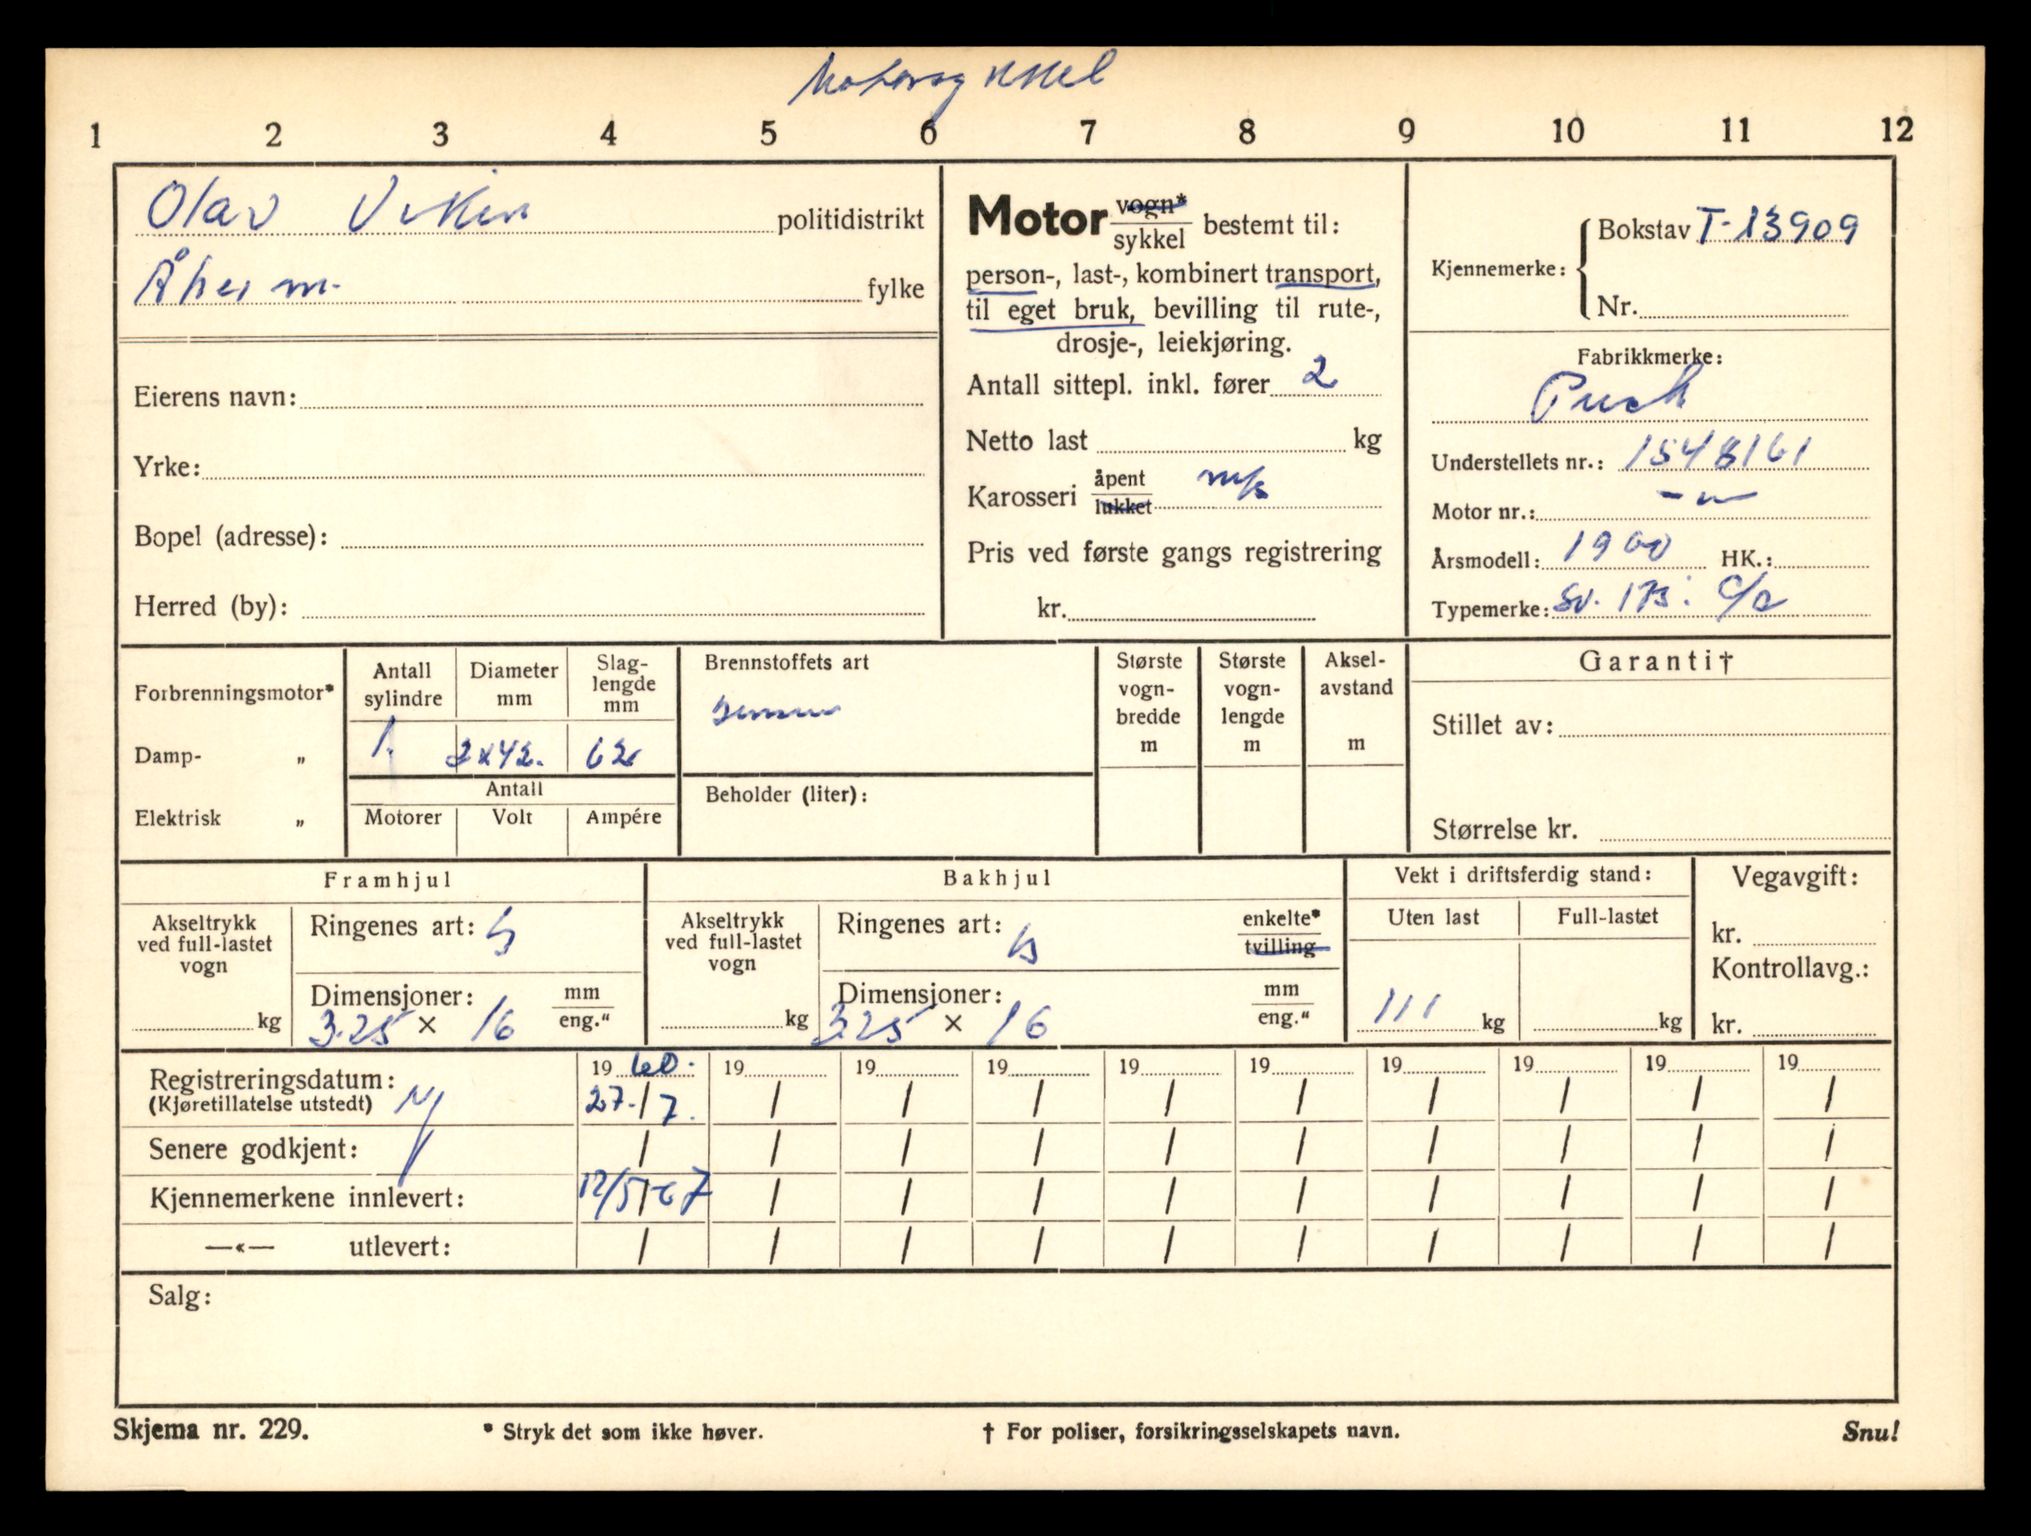 Motorsykkel
1 2 3 4 5 6 7 8 9 10 11 12
Olav politidistrikt
Åheim fylke
Eierens navn:
Yrke:
Bopel (adresse):
Herred (by):
Motor vogn* / sykkel bestemt til:
person-, last-, kombinert transport,
til eget bruk, bevilling til rute-,
drosje-, leiekjøring.
Antall sittepl. inkl. fører 2
Netto last kg
Karosseri åpent / lukket
Pris ved første gangs registrering
kr.
Kjennemerke: Bokstav T-13909
Nr.
Fabrikkmerke:
Puch
Understellets nr.: 1548161
Motor nr.: -"-
Årsmodell: 1960 HK.:
Typemerke: Sv.
Forbrenningsmotor*
Damp- „
Elektrisk „
Antall sylindre
1
Diameter mm
2x42.
Slag-lengde mm
62
Antall
Motorer Volt Ampére
Brennstoffets art
Bensin
Beholder (liter):
Største vogn-bredde m
Største vogn-lengde m
Aksel-avstand m
Garanti†
Stillet av:
Størrelse kr.
Framhjul
Akseltrykk ved full-lastet vogn
kg
Ringenes art:
Dimensjoner: mm / eng."
3.25 × 16
Bakhjul
Akseltrykk ved full-lastet vogn
kg
Ringenes art: enkelte* / tvilling
Dimensjoner: mm / eng."
3.25 × 16
Vekt i driftsferdig stand:
Uten last Full-lastet
111 kg kg
Vegavgift:
kr.
Kontrollavg.:
kr.
19 60. 19 19 19 19 19 19 19 19 19
Registreringsdatum: Ny 27. / 7. / / / / / / / / /
(Kjøretillatelse utstedt)
Senere godkjent: / / / / / / / / / /
Kjennemerkene innlevert: 12/5-67 / / / / / / / / /
—«— utlevert: / / / / / / / / / /
Salg:
Skjema nr. 229. * Stryk det som ikke høver. † For poliser, forsikringsselskapets navn. Snu!